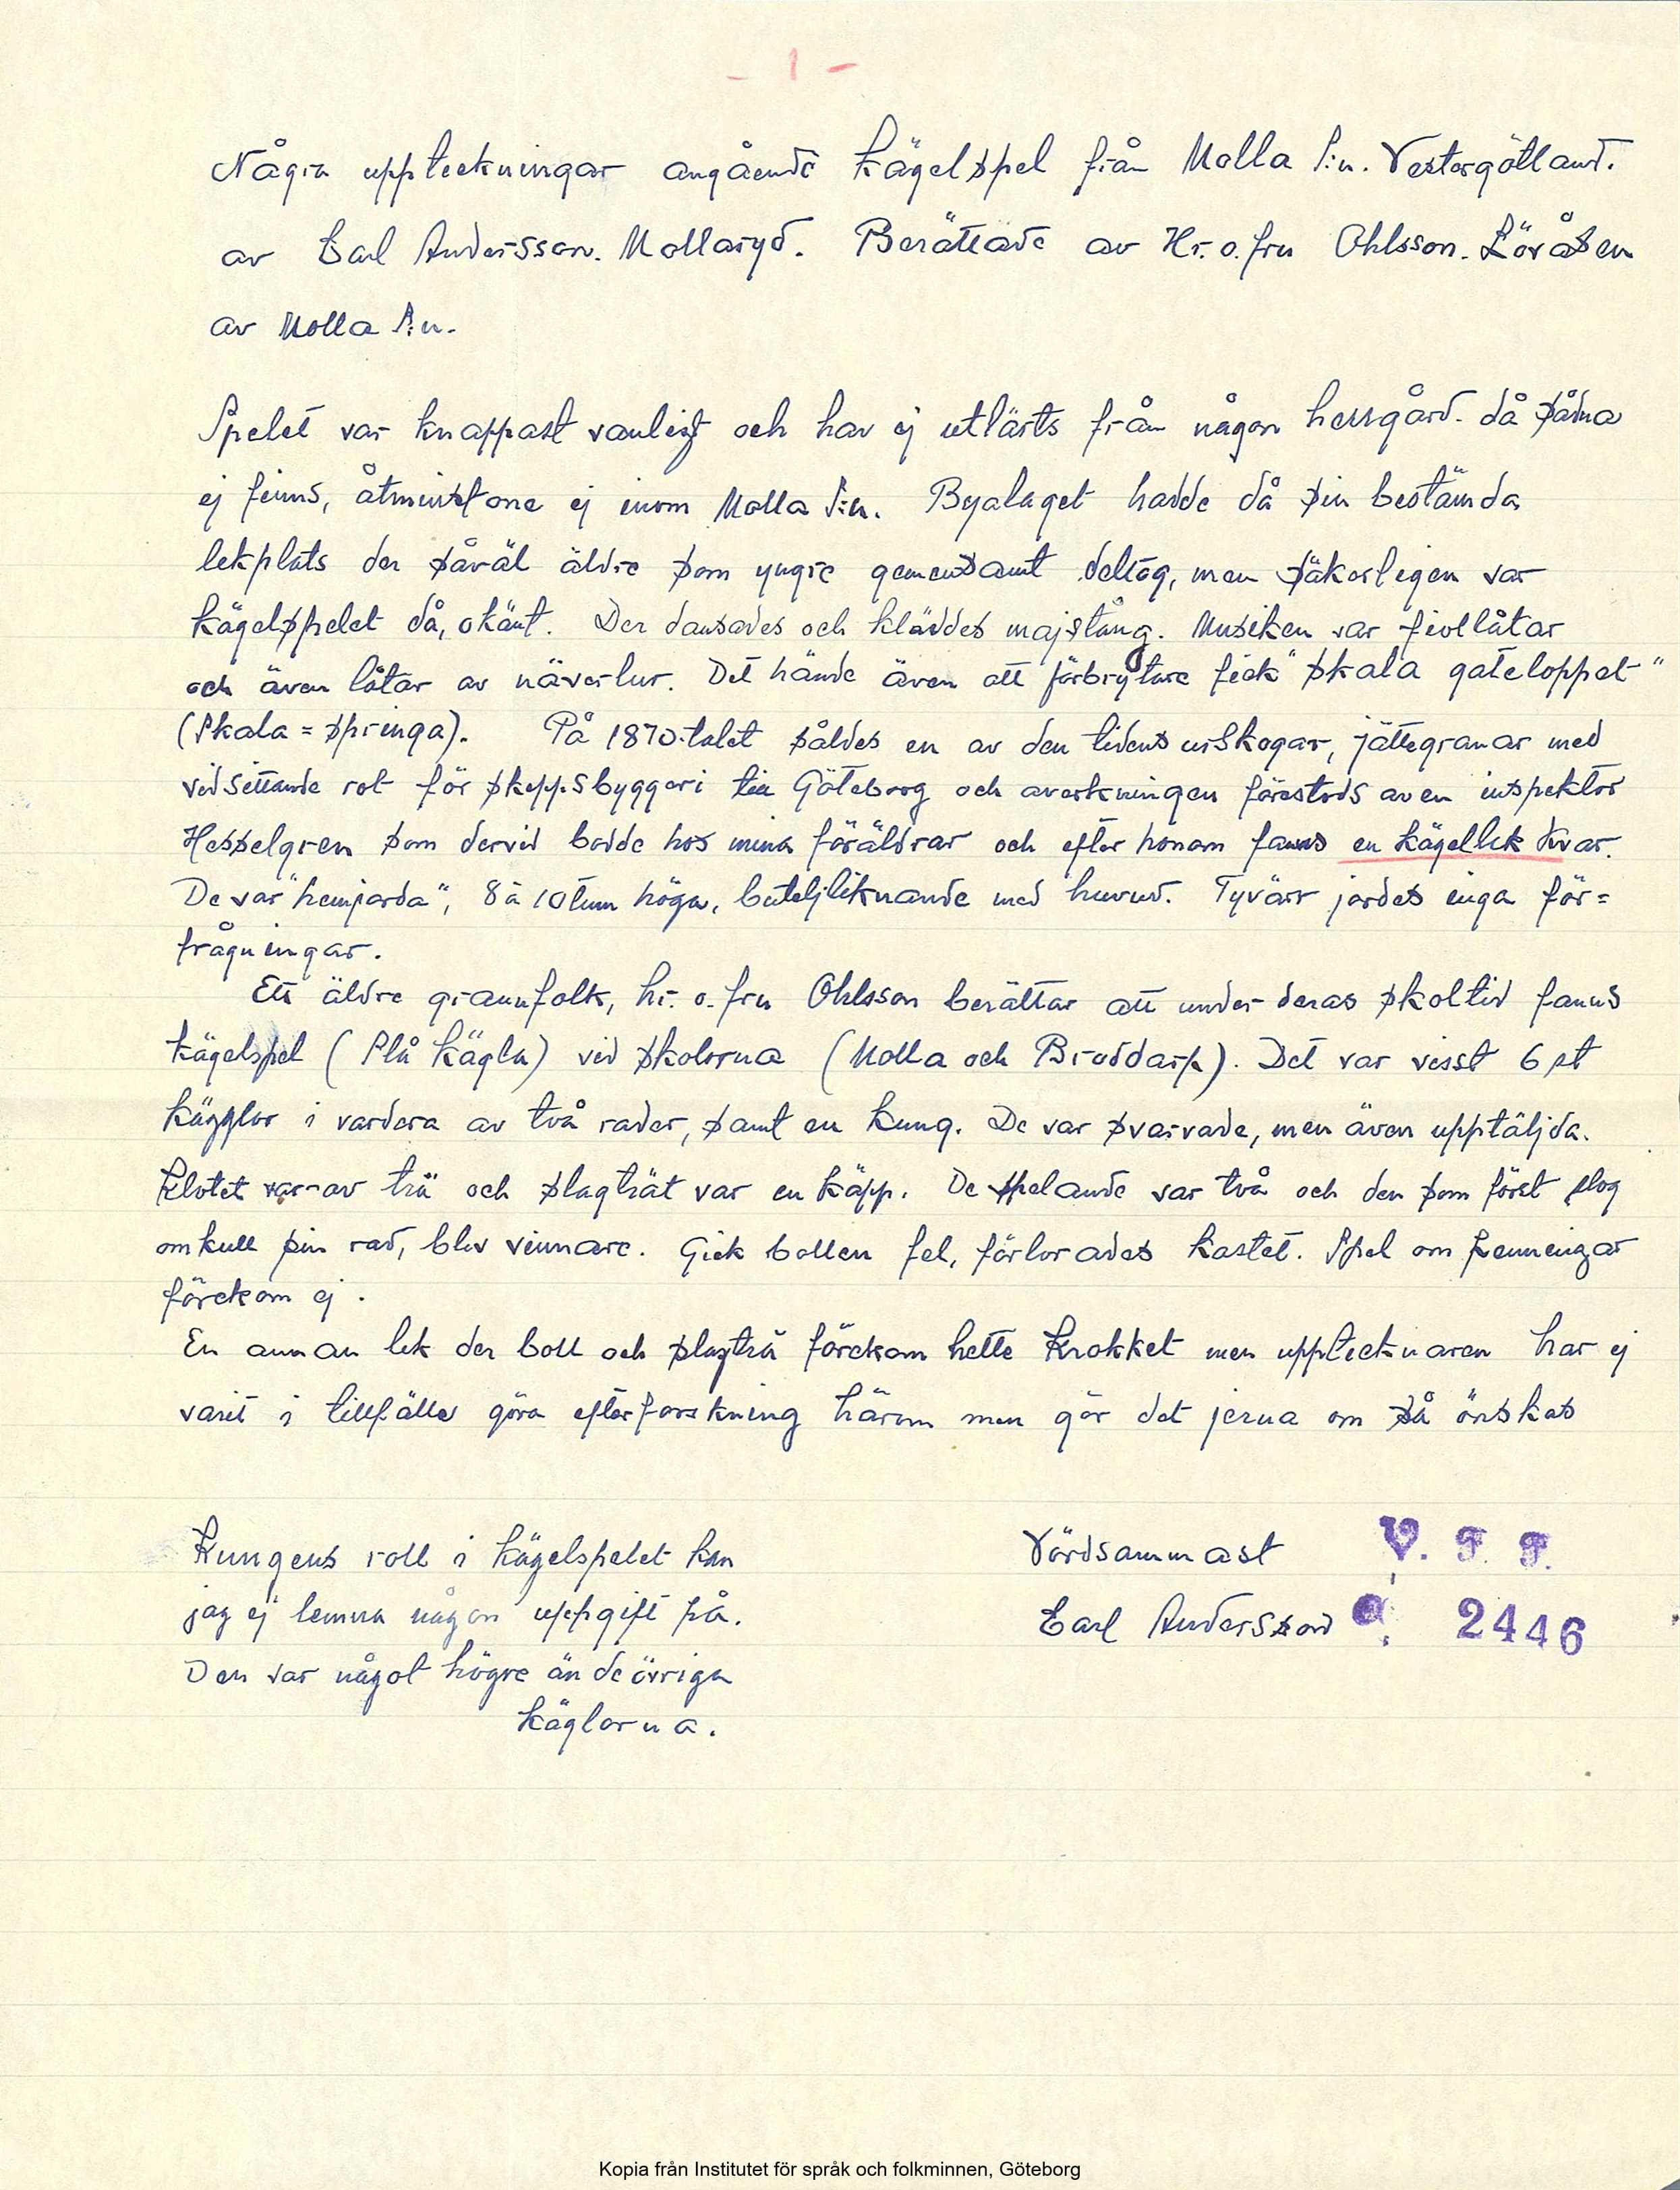 - 1 -
Några uppteckningar angående Kägelspel från Molla S:n. Vestergötland.
av Earl Andersson. Mollaryd. Berättade av Hr. o. fru Ohlsson. Lövåsen
av Molla S:n.
Spelet var knappast vanligt och har ej utlärts från någon herrgård. då sådna
ej finns, åtminstone ej inom Molla S:n. Byalaget hadde då sin bestämda
lekplats der såväl äldre som yngre gemensamt deltog, men säkerligen var
kägelspelet då, okänt. Der dansades och kläddes majstång. Musiken var fiollåtar
och även låtar av näverlur. Det hände även att förbrytare fick "skala gateloppet"
(Skala = springa). På 1870-talet såldes en av den tidens urskogar, jättegranar med
vidsittande rot för skeppsbyggeri till Göteborg och averkningen förestods av en inspektor
Hesselgren som dervid bodde hos mina föräldrar och efter honom fanns en kägellek kvar.
De var "hemjorda", 8 à 10 tum höga, buteljliknande med huvud. Tyvärr jordes inga för=
frågningar.
Ett äldre grannfolk, hr. o. fru Ohlsson berättar att under deras skoltid fanns
kägelspel (Slå Kägla) vid skolorna (Molla och Broddarp). Det var visst 6 st
kägglor i vardera av två rader, samt en kung. De var svarvade, men även upptäljda.
Klotet var av trä och slagträt var en käpp. De spelande var två och den som först slog
omkull sin rad, blev vinnare. Gick bollen fel, förlorades kastet. Spel om penningar
förekom ej.
En annan lek der boll och slagträ förekom hette Krokket men upptecknaren har ej
varit i tillfälle göra efterforskning härom men gör det jerna om så önskas
Kungens roll i kägelspelet kan
jag ej lemna någon uppgift på.
Den var något högre än de övriga
käglorna.
Vördsammast
Earl Andersson
V. F. F.
a. 2446
Kopia från Institutet för språk och folkminnen, Göteborg